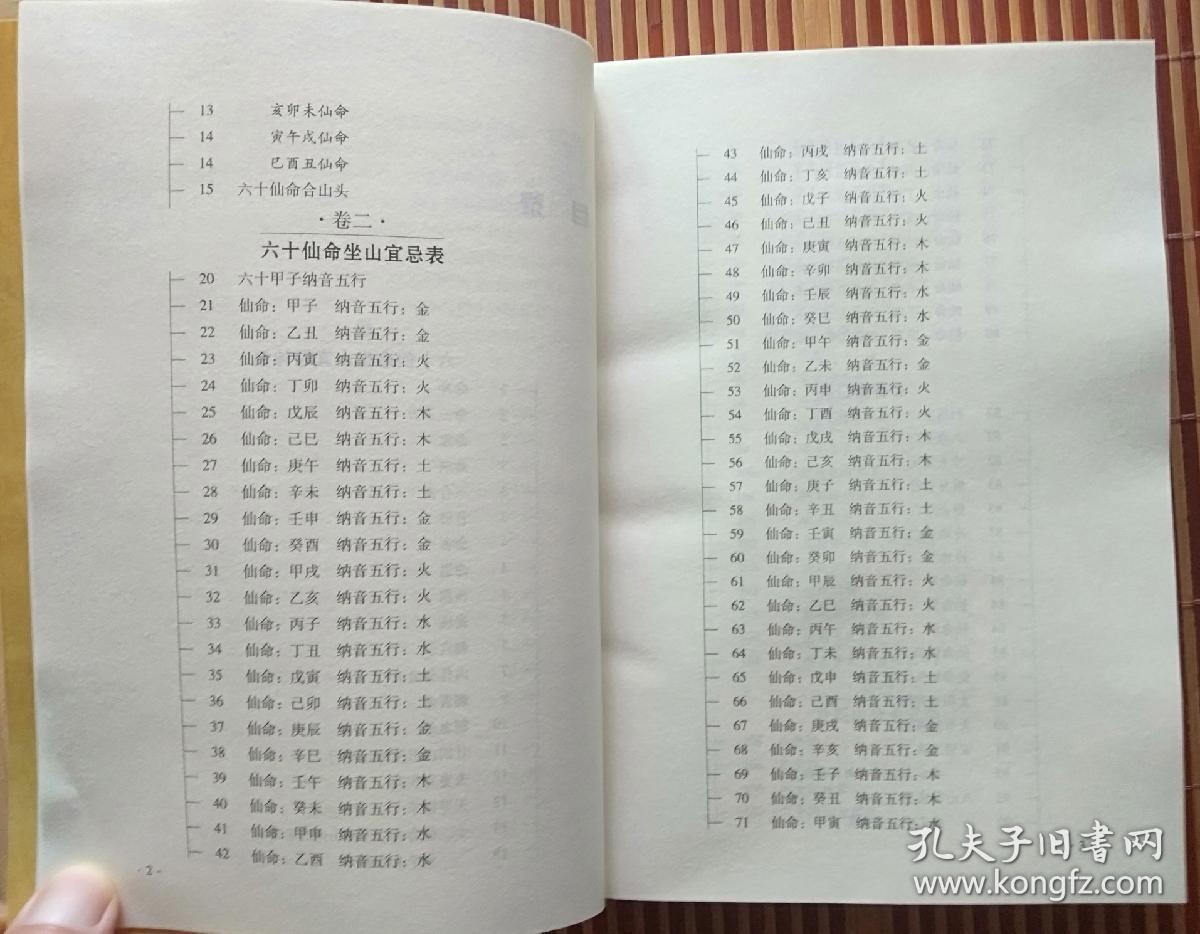 13 亥卯未仙命
14 寅午戌仙命
14 巳酉丑仙命
15 六十仙命合山头
·卷二·
六十仙命坐山宜忌表
20 六十甲子纳音五行
21 仙命：甲子 纳音五行：金
22 仙命：乙丑 纳音五行：金
23 仙命：丙寅 纳音五行：火
24 仙命：丁卯 纳音五行：火
25 仙命：戊辰 纳音五行：木
26 仙命：己巳 纳音五行：木
27 仙命：庚午 纳音五行：土
28 仙命：辛未 纳音五行：土
29 仙命：壬申 纳音五行：金
30 仙命：癸酉 纳音五行：金
31 仙命：甲戌 纳音五行：火
32 仙命：乙亥 纳音五行：火
33 仙命：丙子 纳音五行：水
34 仙命：丁丑 纳音五行：水
35 仙命：戊寅 纳音五行：土
36 仙命：己卯 纳音五行：土
37 仙命：庚辰 纳音五行：金
38 仙命：辛巳 纳音五行：金
39 仙命：壬午 纳音五行：木
40 仙命：癸未 纳音五行：木
41 仙命：甲申 纳音五行：水
42 仙命：乙酉 纳音五行：水
·2·
43 仙命：丙戌 纳音五行：土
44 仙命：丁亥 纳音五行：土
45 仙命：戊子 纳音五行：火
46 仙命：己丑 纳音五行：火
47 仙命：庚寅 纳音五行：木
48 仙命：辛卯 纳音五行：木
49 仙命：壬辰 纳音五行：水
50 仙命：癸巳 纳音五行：水
51 仙命：甲午 纳音五行：金
52 仙命：乙未 纳音五行：金
53 仙命：丙申 纳音五行：火
54 仙命：丁酉 纳音五行：火
55 仙命：戊戌 纳音五行：木
56 仙命：己亥 纳音五行：木
57 仙命：庚子 纳音五行：土
58 仙命：辛丑 纳音五行：土
59 仙命：壬寅 纳音五行：金
60 仙命：癸卯 纳音五行：金
61 仙命：甲辰 纳音五行：火
62 仙命：乙巳 纳音五行：火
63 仙命：丙午 纳音五行：水
64 仙命：丁未 纳音五行：水
65 仙命：戊申 纳音五行：土
66 仙命：己酉 纳音五行：土
67 仙命：庚戌 纳音五行：金
68 仙命：辛亥 纳音五行：金
69 仙命：壬子 纳音五行：木
70 仙命：癸丑 纳音五行：木
71 仙命：甲寅 纳音五行：水
孔夫子旧书网
www.kongfz.com